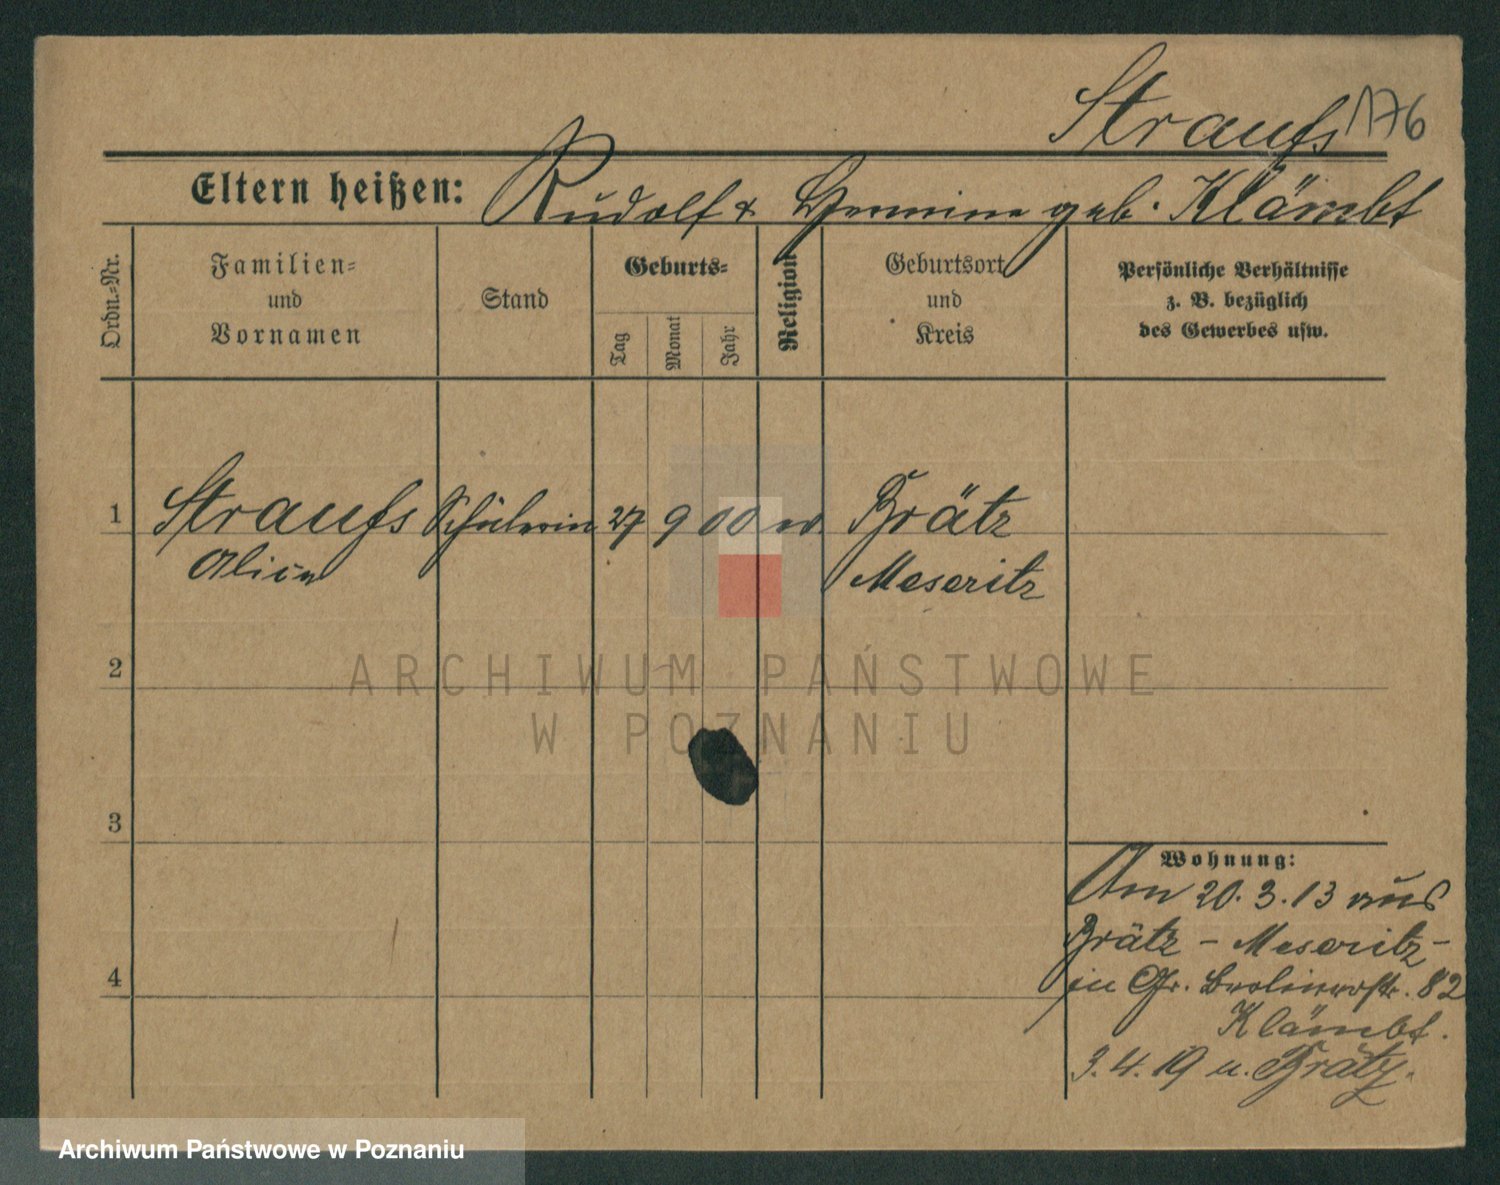 Straufs 176
Eltern heißen: Rudolf & Hermine geb. Klämbt
Ordn.=Nr.
Familien=
und
Vornamen
Stand
Geburts=
Tag
Monat
Jahr
Religion
Geburtsort
und
Kreis
Persönliche Verhältnisse
z. B. bezüglich
des Gewerbes usw.
1 Straufs Schülerin 27 9 00 ev. Brätz
Alice Meseritz
2
ARCHIWUM PAŃSTWOWE
W POZNANIU
3
Wohnung:
Am 20.3.13 aus
Brätz – Meseritz –
in Gr. Berlinerstr. 82
Klämbt.
4
3.4.19 n. Brätz.
Archiwum Państwowe w Poznaniu